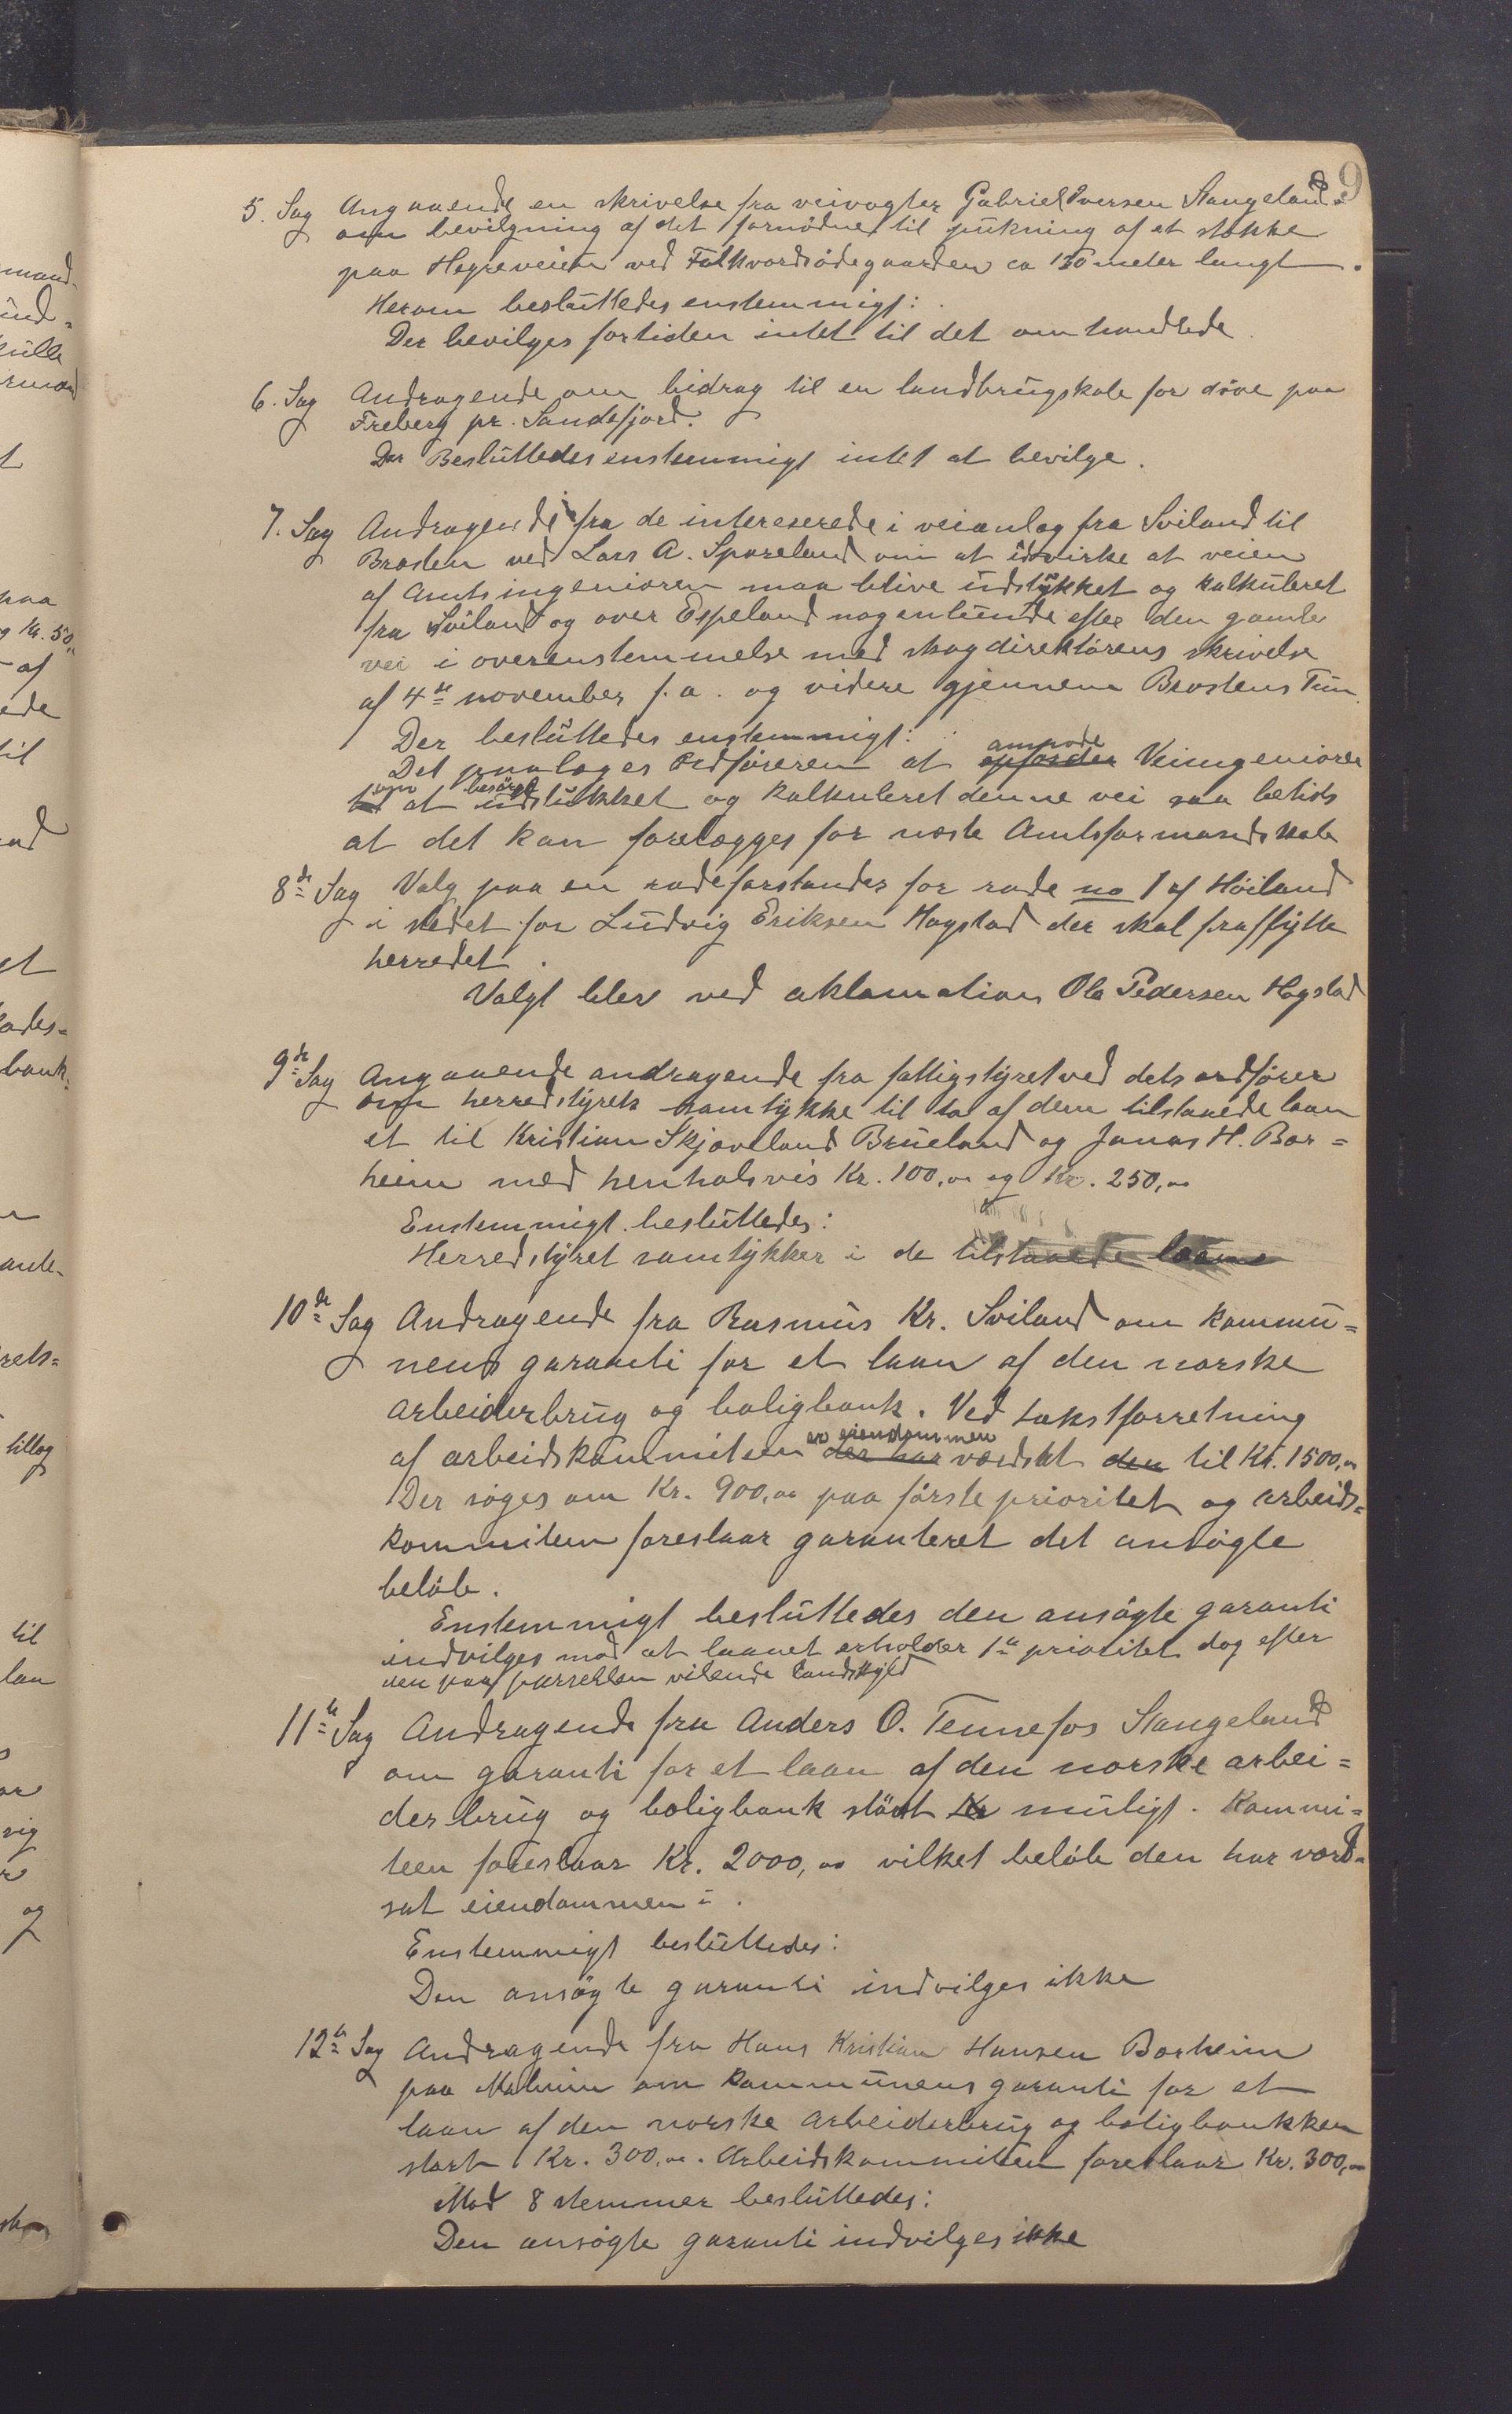 9
5. Sag Angaaende en skrivelse fra veivogter Gabriel Iversen Stangeland
om bevilgning af det fornødne til pukning af et støkke
paa Høgreveien ved Folkvordsødegaarden ca 150 meter langt.
Herom besluttedes enstemmigt:
Der bevilges fortiden intet til det omhandlede
6. Sag Andragende om bidrag til en landbrugskole for døve paa
Freberg pr. Sandefjord.
Der Besluttedes enstemmigt intet at bevilge.
7. Sag Andragende fra de intereserede i veianlæg fra Sviland til
Brosten ved Lars A. Sporeland om at udvirke at veien
af Amtsingeniøren maa blive udstykket og kalkuleret
fra Sviland og over Espeland nogenlunde efter den gamle
vei i overenstemmelse med skogdirektørens skrivelse
af 4de november f.a. og videre gjennem Brostens Tun.
Der besluttedes enstemmigt:
Det paalæges Ordføreren at opfordre anmode Veiingeniøren
til om at besørge udstukket og kalkuleret denne vei saa betids
at det kan forelægges for næste Amtsformandskab
8de Sag Valg paa en rodeforstander for rode no 1 af Høiland
i stedet for Ludvig Eriksen Hogstad der skal fraflytte
herredet.
Valgt blev ved aklamation Ole Pedersen Hogstad
9de Sag Angaaende andragende fra fattigstyret ved dets ordfører
om herredstyrets samtykke til to af dem tilstaaede laan
et til Kristian Skjæveland Brueland og Jonas H. Bor=
heim med henholsvis Kr. 100,00 og Kr. 250,00
Enstemmigt besluttedes:
Herredstyret samtykker i de tilstaaede laane
10de Sag Andragende fra Rasmus Kr. Sviland om kommu=
nens garanti for et laan af den norske
arbeiderbrug og boligbank. Ved takstforretning
af arbeidskommiteen der har er eiendommen værdsat den til Kr. 1500,00
Der søges om Kr. 900,00 paa første prioritet og arbeids=
kommiteen foreslaar garanteret det ansøgte
beløb.
Enstemmigt besluttedes den ansøgte garanti
indvilges mod at laanet erholder 1ste prioritet dog efter
den paa parsellen vilende landskyld
11te Sag Andragende fra Anders O. Tennefos Stangeland
om garanti for et laan af den norske arbei=
derbrug og boligbank størst Kr muligt. Kommi=
teen foreslaar Kr. 2000,00 vilket beløb den har værd=
sat eiendommen i.
Enstemmigt besluttedes:
Den ansøgte garanti indvilges ikke
12te Sag Andragende fra Hans Kristian Hansen Borheim
paa Malmin om kommunens garanti for et
laan af den norske arbeiderbrug og boligbankken
stort Kr. 300,00. Arbeidskommiteen foreslaar Kr. 300,00
Mod 8 stemmer besluttedes:
Den ansøgte garanti indvilges ikke